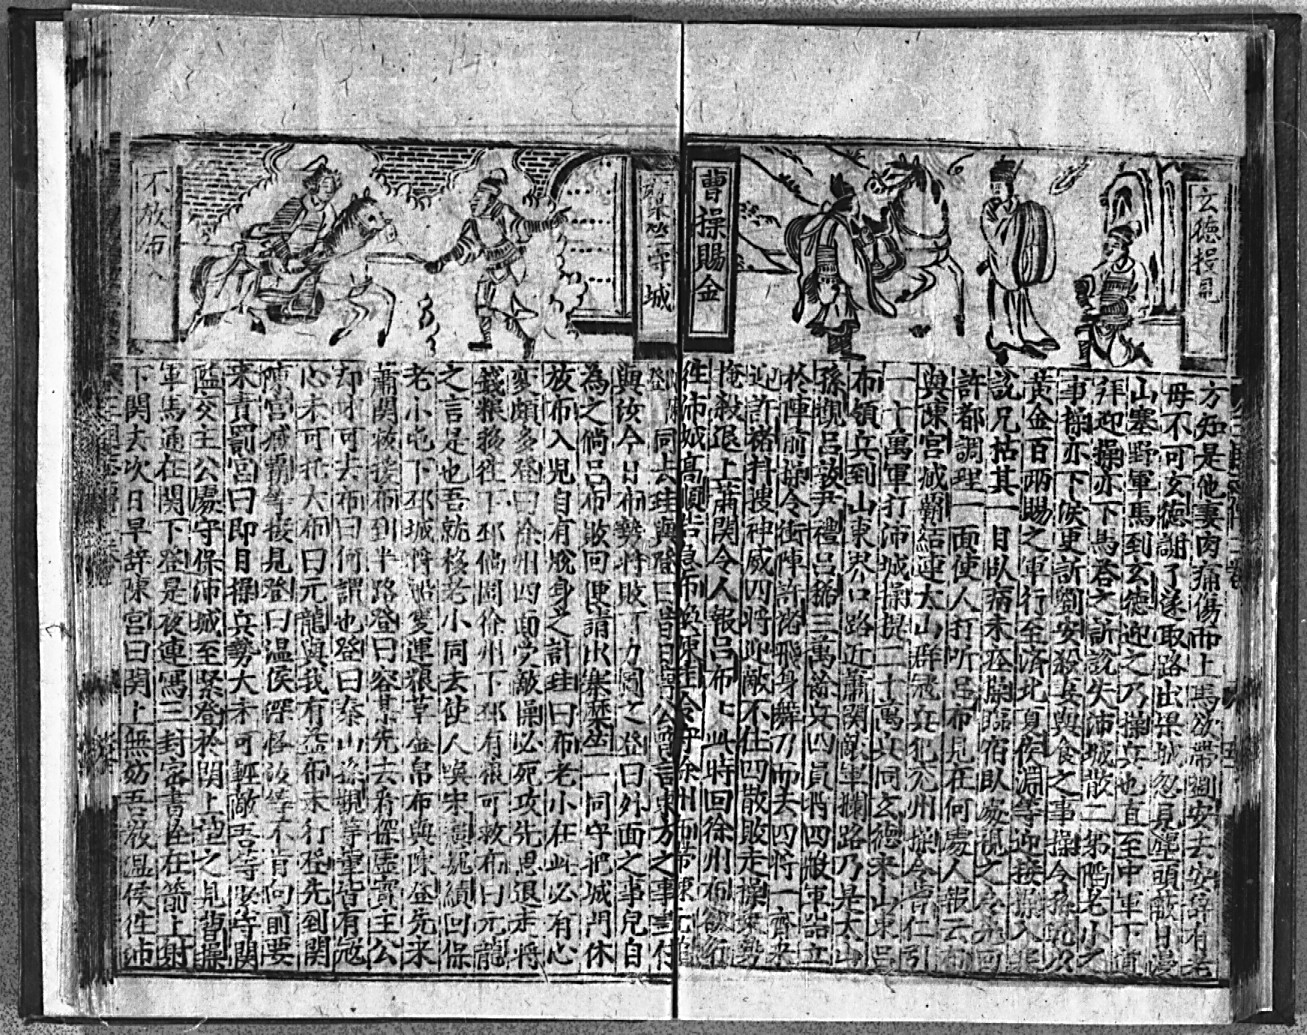 玄德投見
曹操賜金
方知是他妻肉痛傷而上馬欲帶劉安去安辭有老
母不可玄德謝了遂取路出梁城忽見塵頭蔽日漫
山塞野軍馬到玄德迎之乃操兵也直至中軍下
拜迎操亦下馬答之訴說失沛城散二弟陷老小之
事操亦下淚更訴劉安殺妻與食之事操令孫乾以
黃金百兩賜之軍行至濟北夏侯淵等迎接操入寨
說兄折其一目臥病未痊操臨宿臥處視之令先回
許都調理一面使人打听呂布見在何處人報云布
與陳宮臧霸結連太山群寇兵犯兗州操令曹仁引
一十萬軍打沛城操提二十萬兵同玄德來山東呂
布領兵到山東界口路近蕭關敵軍攔路乃是太山
孫觀吳敦尹禮呂稀三萬餘兵四員將四散軍立
於陣前操令衝陣許褚飛身舞刀而去四將一齊來
迎許褚抖擻神威四將迎敵不住四散敗走操乘勢
掩殺退上蕭關令人報呂布布此時回徐州布欲行
往沛城高順告急布喚陳珪令守徐州布帶陳元龍
糜竺守城
不放布入
登同去珪與登曰昔日曹公曾言東方之事盡付
與汝今日布勢將敗可力圖之登曰外面之事兒自
為之倘呂布敗回便請出糜竺一同守把城門休
放布入兒自有脫身之計珪曰布老小在此必有心
腹頗多登曰徐州四面受敵操必死攻先思退走將
錢粮移往下邳倘圍徐州下邳有粮可救布曰元龍
之言是也吾就移老小同去使人喚宋憲魏續回保
老小屯下邳城將運粮草金帛布與陳登先來
蕭關布到半路登曰容某先去看探虛實主公
却才可去布曰何謂也登曰泰山孫觀等輩皆有寇
心未可托大布曰元龍與我有益布未行登先到關
陳宮臧霸等接見登曰温侯深怪汝等不肯向前要
來責罰宮曰即目操兵勢大未可輕敵吾等緊守關
隘交主公守保沛城至緊登於關上望之見曹操
軍馬逼在關下登是夜連寫三封密書拴在箭上射
下關去次日早辭陳宮曰關上無妨吾教温侯往沛